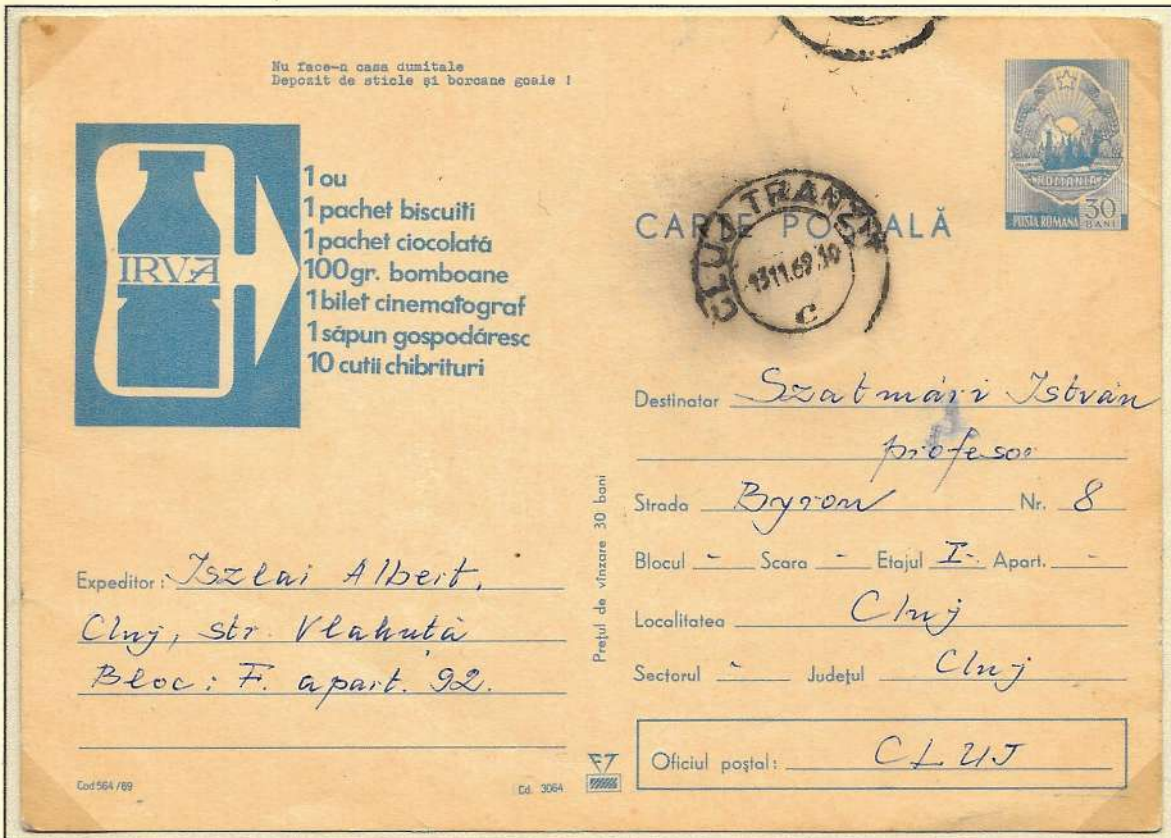 Nu face-n casa dumitale
Depozit de sticle și borcane goale !
IRVA
1 ou
1 pachet biscuiti
1 pachet ciocolată
100gr. bomboane
1 bilet cinematograf
1 săpun gospodăresc
10 cutii chibrituri
ROMÂNIA
POSTA ROMANA 30 BANI
CARTE POȘTALĂ
CLUJ TRANZIT
13 11.69.10
C
Destinatar Szatmári István
profesor
Strada Byron Nr. 8
Blocul - Scara - Etajul I- Apart. -
Localitatea Cluj
Sectorul - Județul Cluj
Oficiul poștal: CLUJ
Prețul de vînzare 30 bani
Expeditor: Iszlai Albert,
Cluj, str. Vlahuță
Bloc: F. apart. 92.
Cod 564/69
Cd. 3064